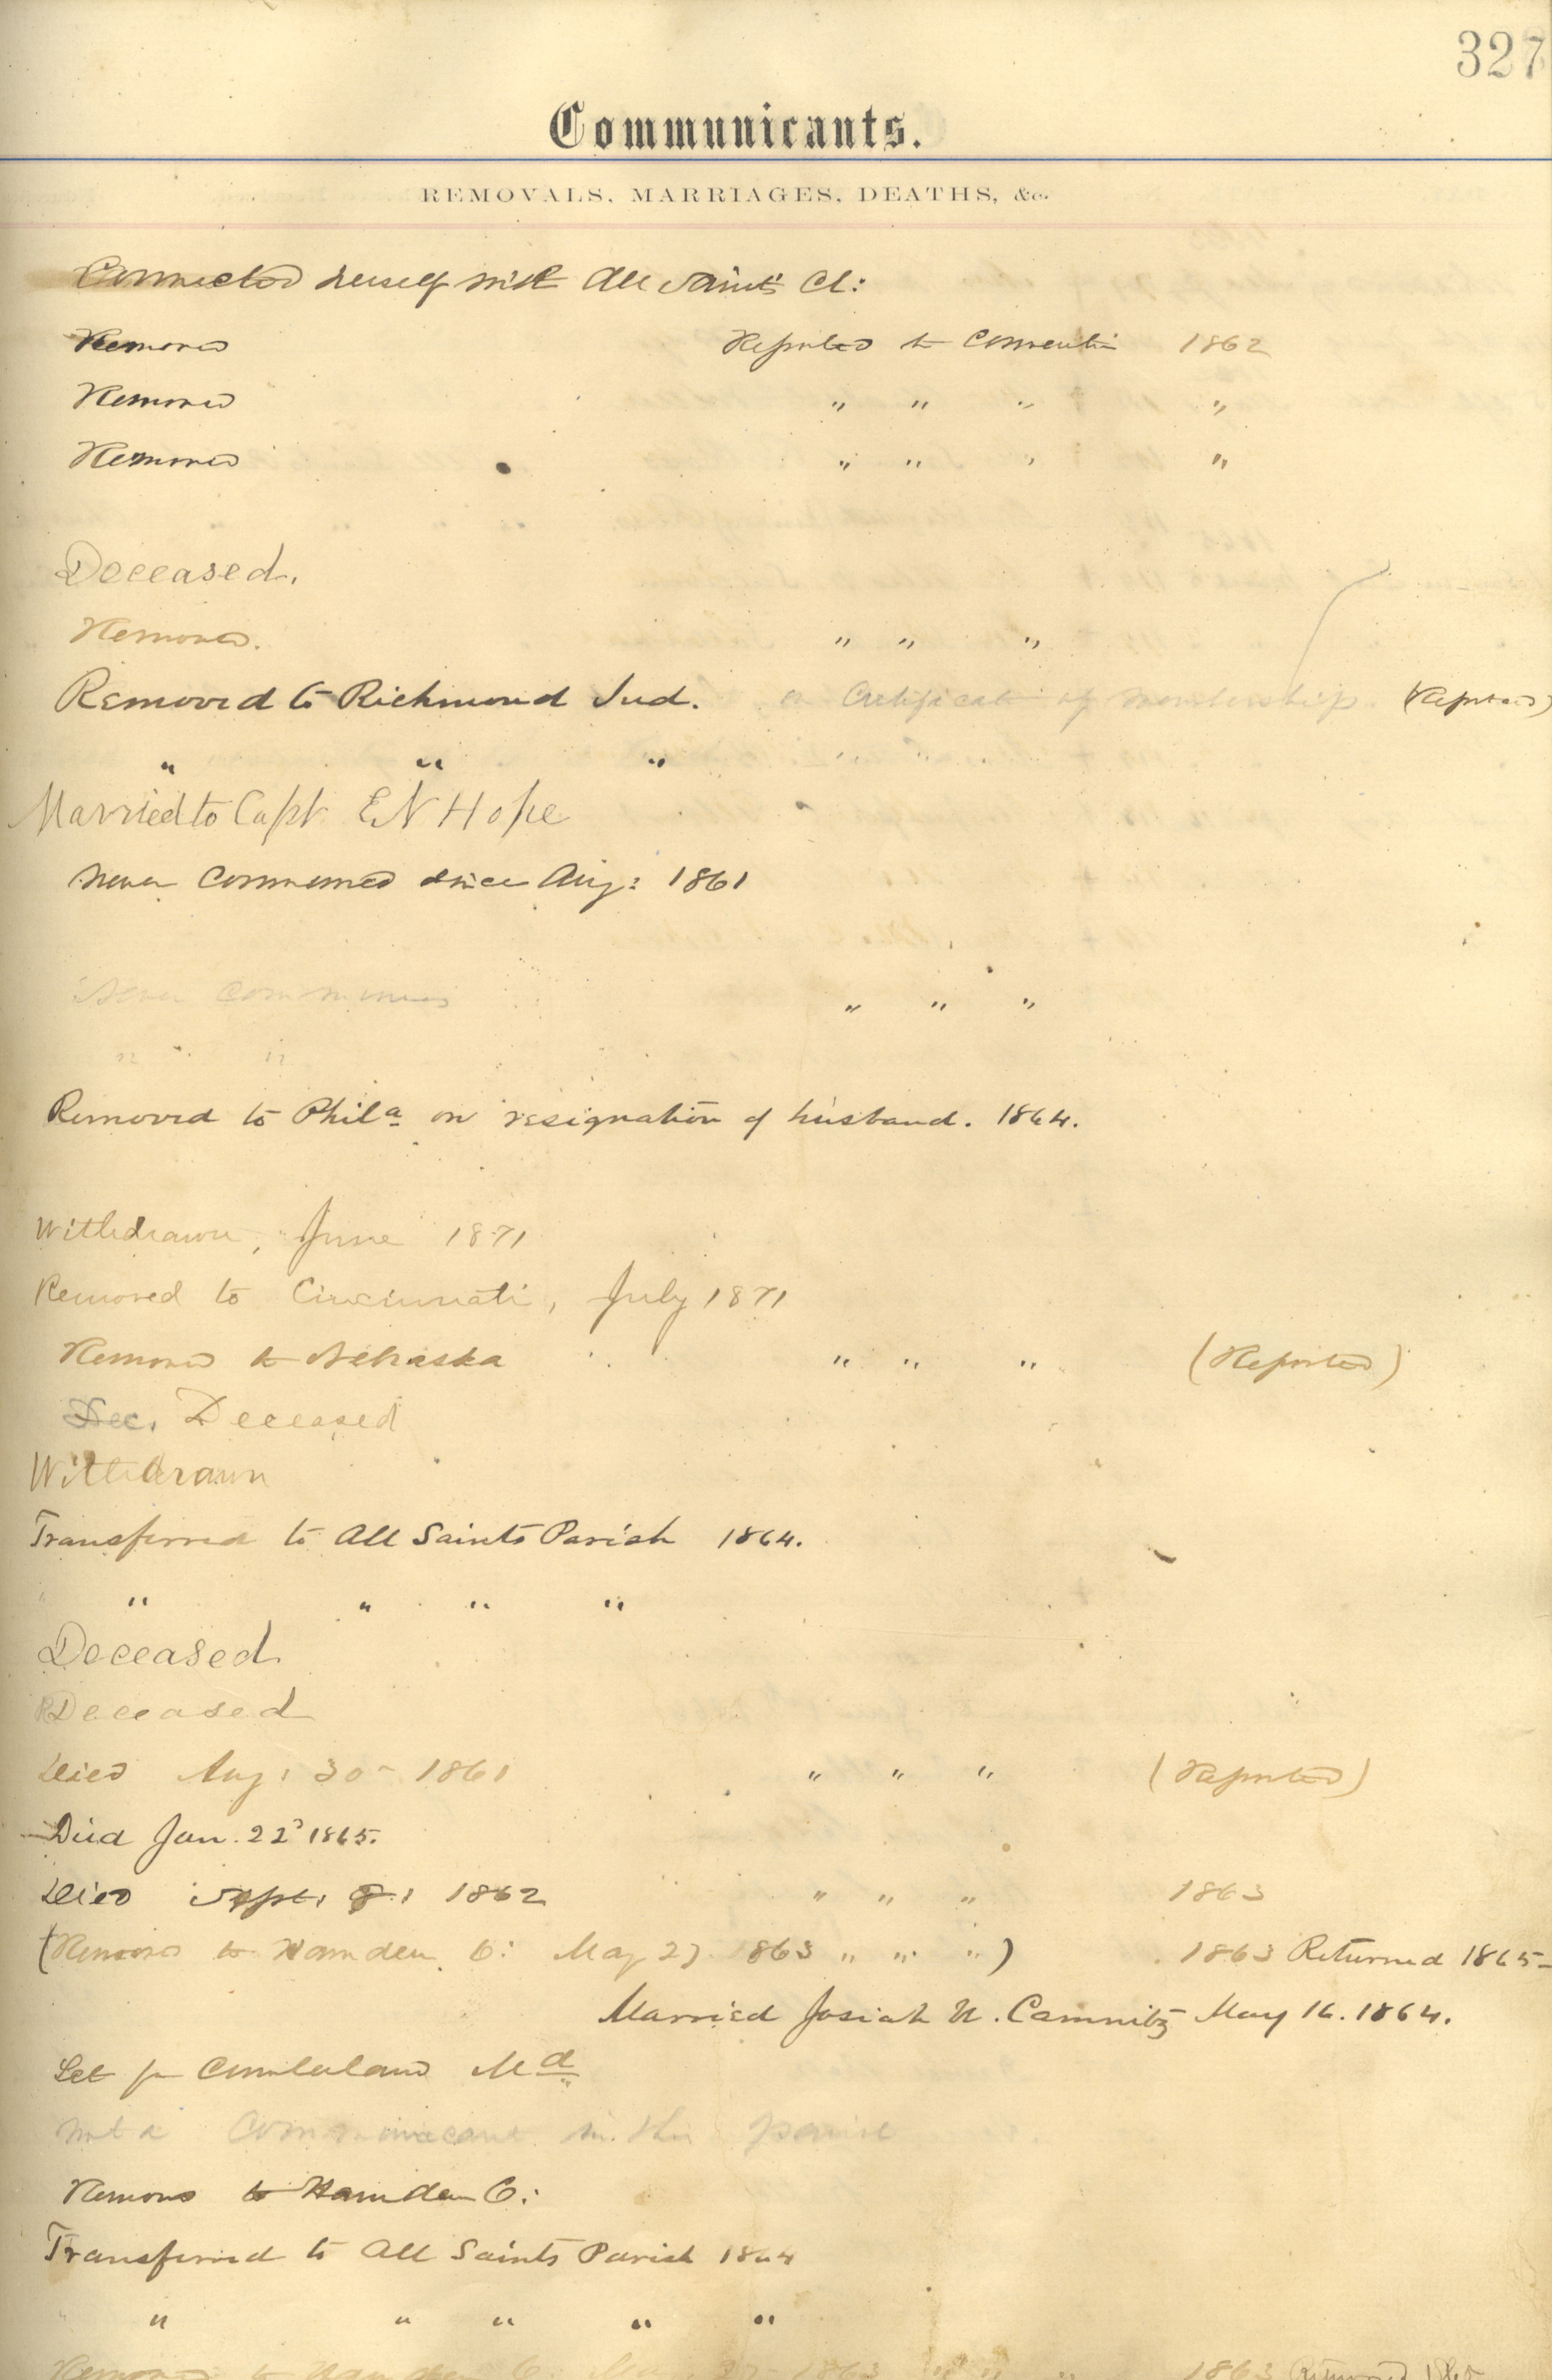 327
Communicants.
REMOVALS, MARRIAGES, DEATHS, &c.
Connected herself with All Saints Ch:
Removed Reported to Convention 1862
Removed " " " "
Removed " " " "
Deceased.
Removed. " " "
Removed to Richmond Ind. on Certificate of membership. (Reported)
" " "
Married to Capt. E N Hope
Never Communed since Aug: 1861
Never Communed " " "
" "
Removed to Phila on resignation of husband. 1864.
Withdrawn, June 1871
Removed to Cincinnati, July 1871
Removed to Nebraska " " " (Reported)
Dec. Deceased
Withdrawn
Transferred to All Saints Parish 1864.
" " " "
Deceased.
Deceased
Died Aug: 30 1861 " " " (Reported)
Died Jan. 22d 1865.
Died Sept. 8: 1862 " " " 1863
(Removed to Hamden O: May 27 1863 " " ") 1863 Returned 1865
Married Josiah N. Camnitz May 16. 1864.
Let for Cumberland Md
Not a Communicant in this parish
Removed to Hamden O:
Transferred to All Saints Parish 1864
" " " " "
Removed to Hamden O: May 27 1863 " " " 1863 Returned 1865